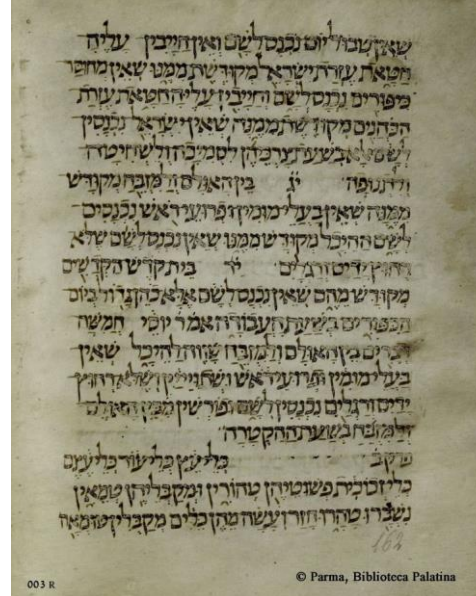 שאין טבול יום נכנס לשם ואין חייבין עליה
חטאת עזרת ישראל מקודשת ממנו שאין מחוסר
כיפורים נכנס לשם וחייבין עליה חטאת עזרת
הכהנים מקודשת ממנה שאין ישראל נכנסין
לשם אלא בשעת צרכיהן לסמיכה ולשחיטה
ולתנופה יג בין האולם ולמזבח מקודש
ממנה שאין בעלי מומין ופרועי ראש נכנסים
לשם ההיכל מקודש ממנו שאין נכנס לשם שלא
רחוץ ידים ורגלים יד בית קדש הקדשים
מקודש מהם שאין נכנס לשם אלא כהן גדול ביום
הכפורים בשעת העבודה אמר יוסי חמשה
דברים בין האולם ולמזבח שווה להיכל שאין
בעלי מומין ופרועי ראש ושתויי יין ושלא רחוץ
ידים ורגלים נכנסין לשם ופורשין מבין האולם
ולמזבח בשעת ההקטרה
פרק ב כלי עץ כלי עור כלי עצם
כלי זכוכית פשוטיהן טהורין ומקבליהן טמאין
נשברו טהרו חזר ועשה מהן כלים מקבלין טומאה
162
003 R © Parma, Biblioteca Palatina